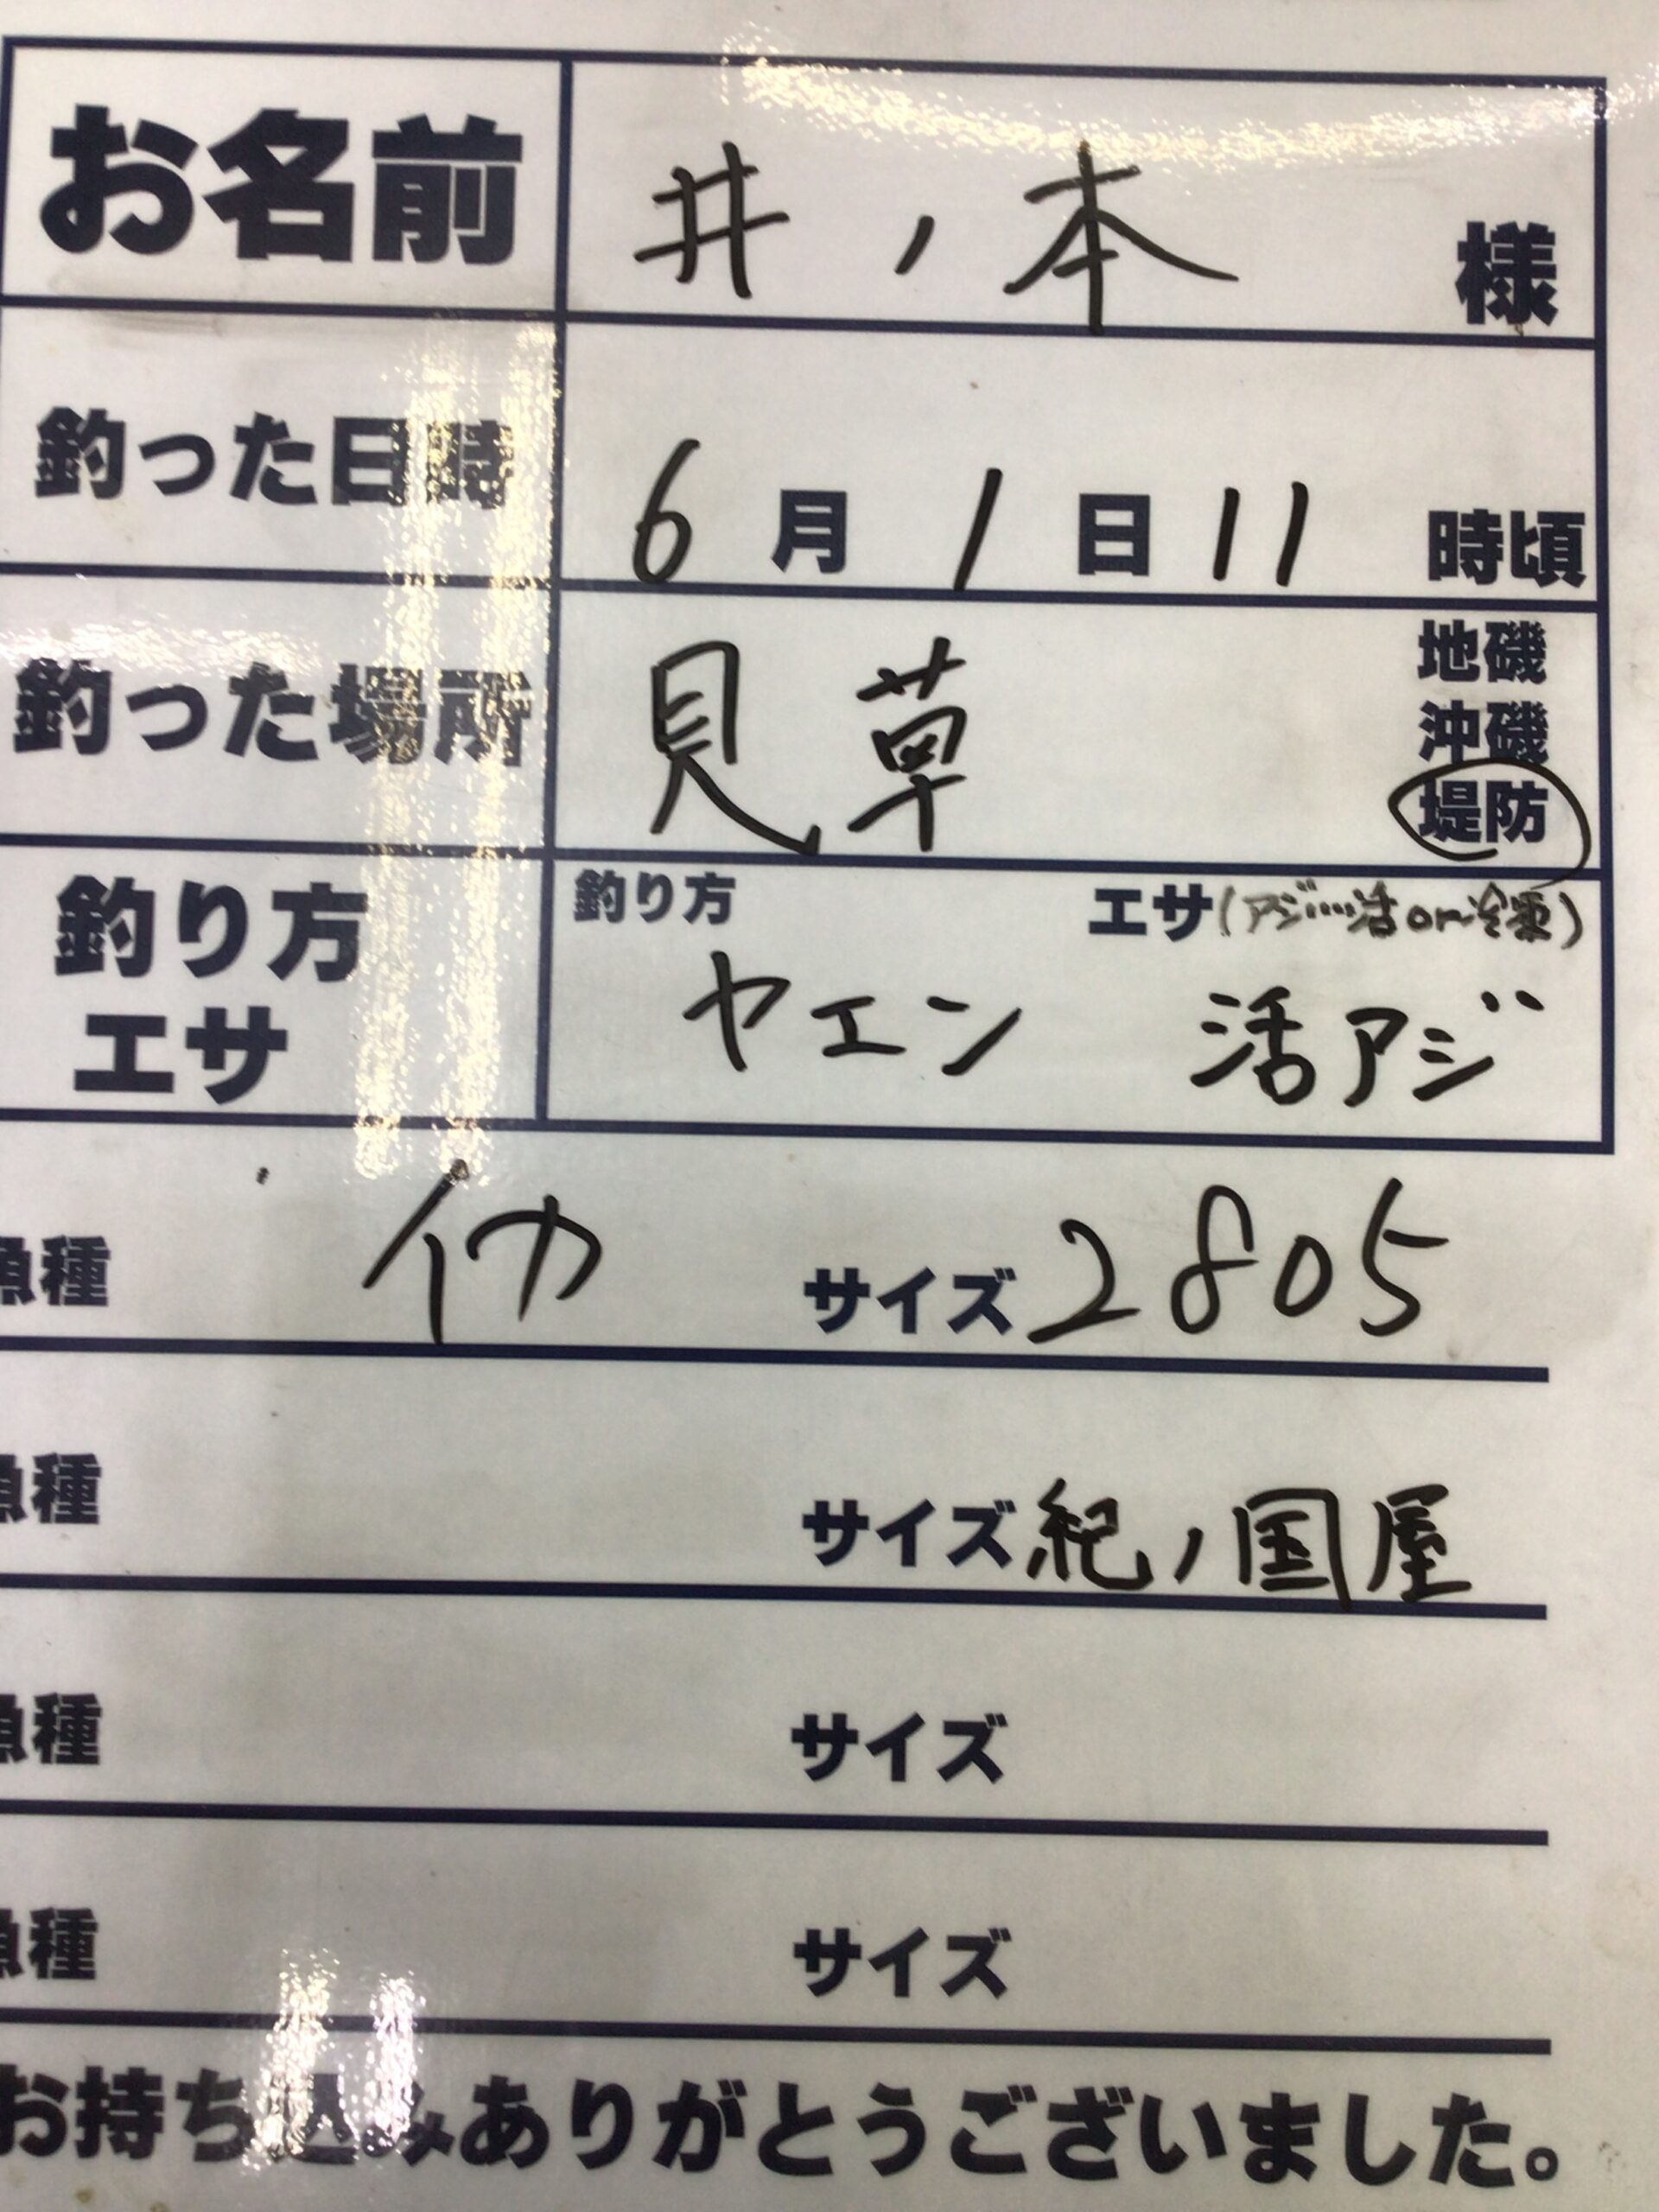 お名前 井ノ本 様
釣った日時 6月1日11時頃
釣った場所 見草 地磯
沖磯
堤防
釣り方 エサ(アジ…活or冷凍)
釣り方 ヤエン 活アジ
エサ
魚種 イカ サイズ 2805
魚種 サイズ 紀ノ国屋
魚種 サイズ
魚種 サイズ
お持ち込みありがとうございました。